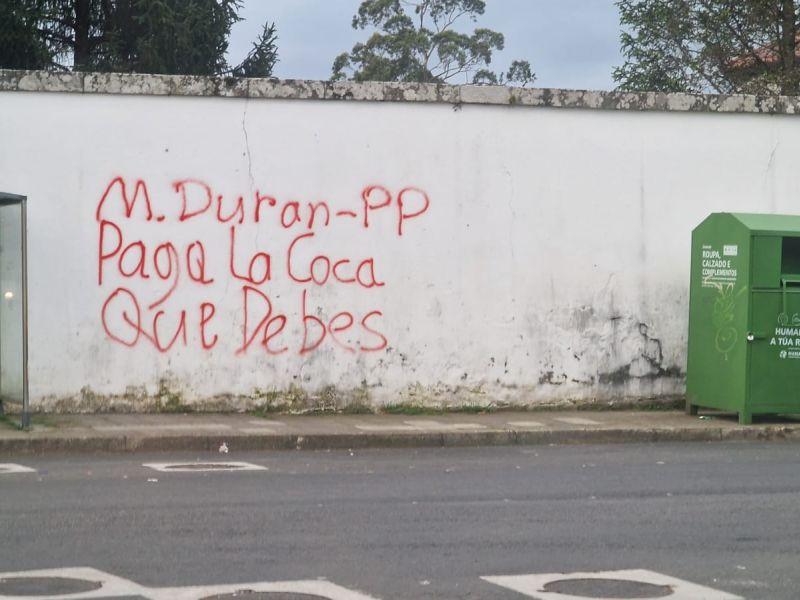 M. Duran-PP
Paga La Coca
Que Debes
ROUPA,
CALZADO E
COMPLEMENTOS
HUMAN
A TÚA R